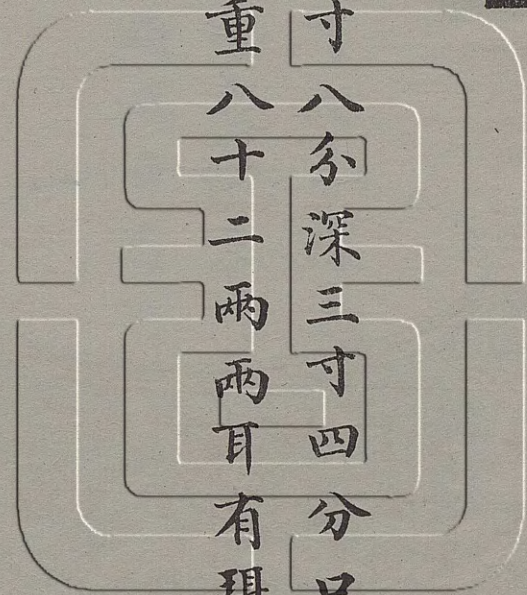 寸八分深三寸四分口
重八十二兩兩耳有珥